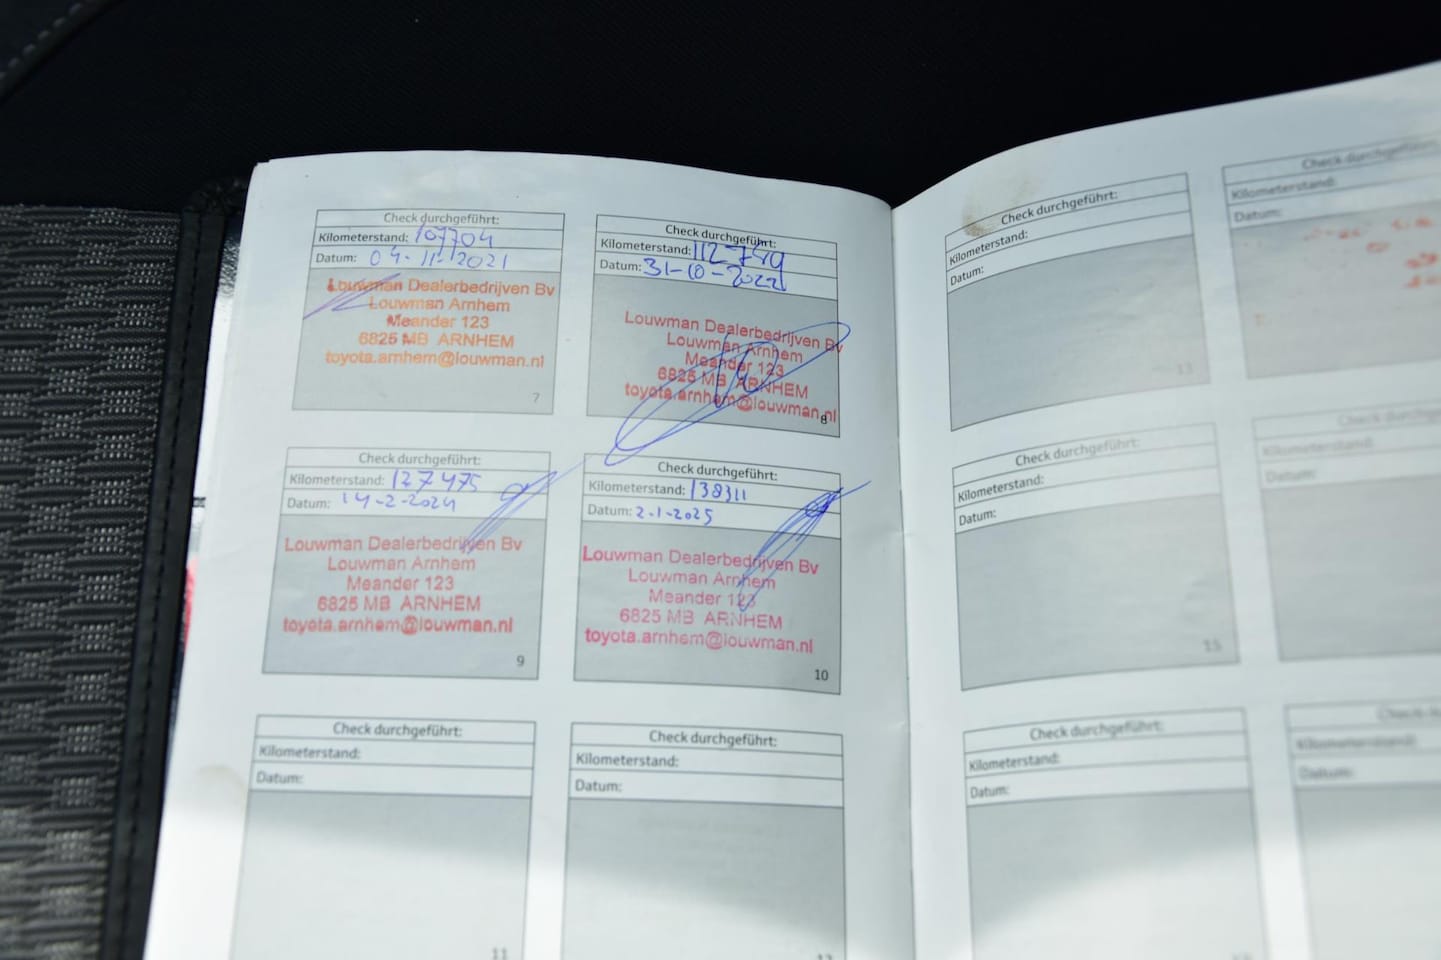 Check durchgeführt:
Kilometerstand: 107704
Datum: 04-11-2021
Louwman Dealerbedrijven Bv
Louwman Arnhem
Meander 123
6825 MB ARNHEM
toyota.arnhem@louwman.nl
7
Check durchgeführt:
Kilometerstand: 112749
Datum: 31-10-2022
Louwman Dealerbedrijven Bv
Louwman Arnhem
Meander 123
6825 MB ARNHEM
toyota.arnhem@louwman.nl
8
Check durchgeführt:
Kilometerstand: 127475
Datum: 14-2-2024
Louwman Dealerbedrijven Bv
Louwman Arnhem
Meander 123
6825 MB ARNHEM
toyota.arnhem@louwman.nl
9
Check durchgeführt:
Kilometerstand: 138311
Datum: 2-1-2025
Louwman Dealerbedrijven Bv
Louwman Arnhem
Meander 123
6825 MB ARNHEM
toyota.arnhem@louwman.nl
10
Check durchgeführt:
Kilometerstand:
Datum:
11
Check durchgeführt:
Kilometerstand:
Datum:
12
Check durchgeführt:
Kilometerstand:
Datum:
13
Check durchgeführt:
Kilometerstand:
Datum:
Check durchgeführt:
Kilometerstand:
Datum:
15
Check durchgeführt:
Kilometerstand:
Datum:
Check durchgeführt:
Kilometerstand:
Datum:
Check
Kilometerstand:
Datum: